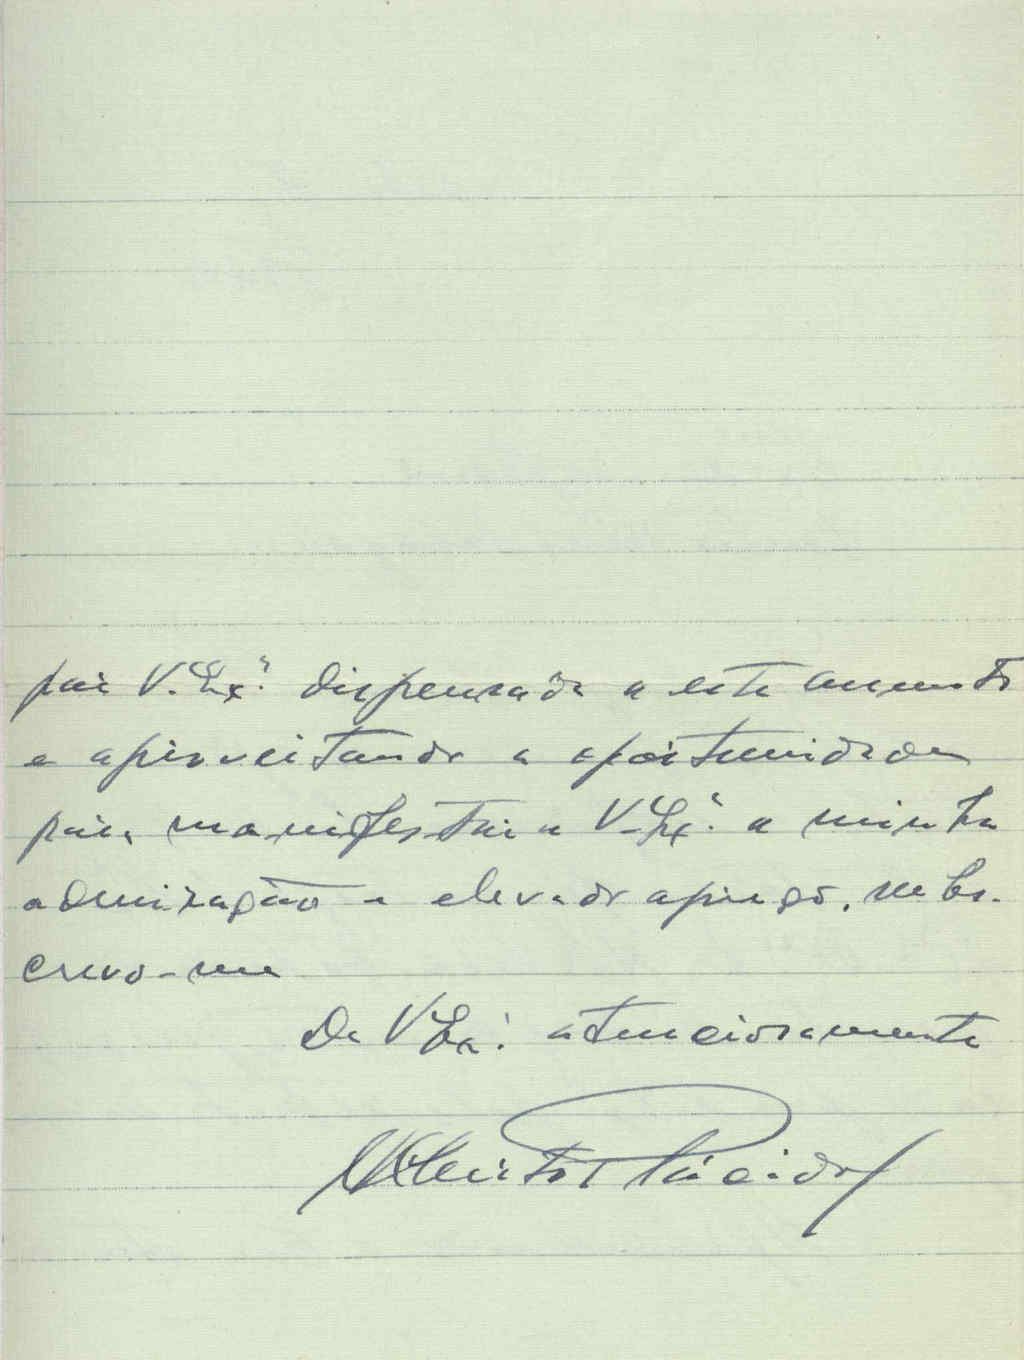 por V. Exª. dispensada a este assunto
e aproveitando a oportunidade
para manifestar a V. Exª. a minha
admiração e elevado aprêço, subs-
crevo-me
De V. Exª. atenciosamente